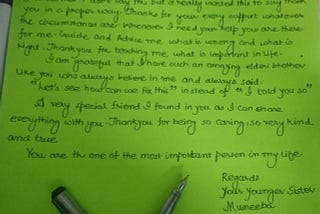 I don't say this but I really wanted to say thank
you in a proper way. Thanks for your every support whatever
the circumstances are. Whenever I need your help you are there
for me. Guide, and Advice me what is wrong and what is
Right. Thankyou for teaching me, what is important in life.
I am grateful that I have such an amazing elder brother
Like you who always believe in me and always said.
"Let's see how can we fix this" instead of "I told you so"
A very special friend I found in you as I can share
everything with you. Thankyou for being so caring, so very kind
and true
You are the one of the most important person in my life
Regards
Your Younger Sister
Muneeba